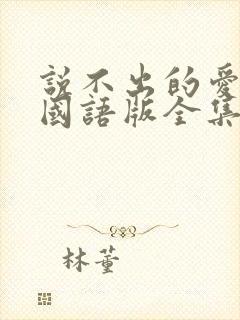 說不出的愛
國語版全集
林董